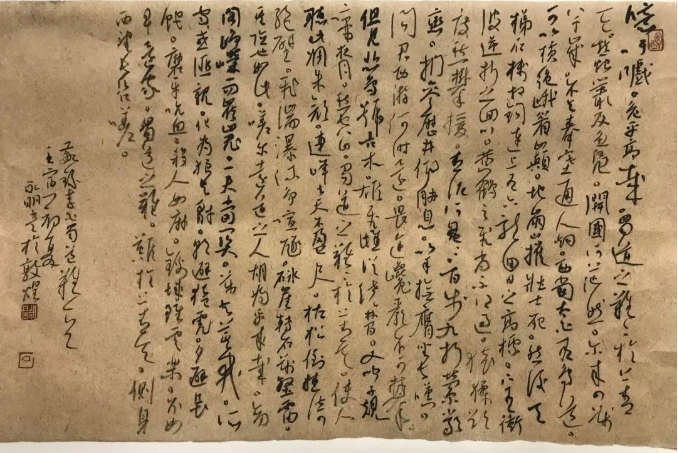 噫吁嚱。危乎高哉。蜀道之难。难于上青
天。蚕丛及鱼凫。開國何茫然。尔来四万
八千岁。不与秦塞通人烟。西当太白有鸟道。
可以横绝峨眉巅。地崩山摧壮士死。然后天
梯石栈相钩连。上有六龙回日之高标。下有冲
波逆折之回川。黄鹤之飞尚不得过。猿猱欲
度愁攀援。青泥何盘盘。百步九折萦岩
峦。扪参历井仰胁息。以手抚膺坐长叹。
问君西游何时还。畏途巉岩不可攀。
但见悲鸟號古木。雄飞雌从绕林间。又闻子規
啼夜月。愁空山。蜀道之難。難于上青天。使人
聽此凋朱颜。連峰去天不盈尺。枯松倒挂倚
绝壁。飞湍瀑流争喧豗。砯崖转石万壑雷。
其险也如此。嗟尔远道之人胡为乎来哉。剑
阁峥嵘而崔嵬。一夫当关。万夫莫开。所
守或匪親。化为狼与豺。朝避猛虎。夕避長
蛇。磨牙吮血。殺人如麻。锦城雖云樂。不如
早还家。蜀道之难。難于上青天。侧身
西望长咨嗟。
李白蜀道難一首
壬寅初夏
永明書於敦煌